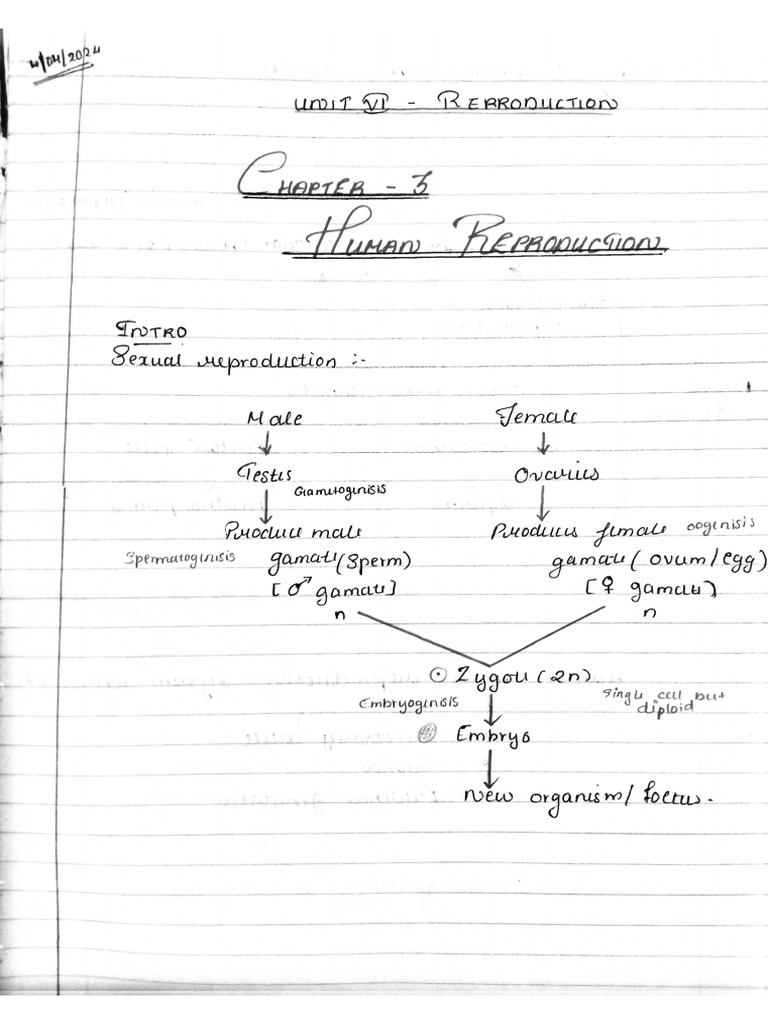 4/04/2024
UNIT VI - REPRODUCTION
CHAPTER - 3
HUMAN REPRODUCTION
INTRO
Sexual reproduction :-
Male Female
Testis Ovaries
Gametogenisis
Produce male Produces female oogenisis
Spermatogenisis gamate (Sperm) gamate (ovum/egg)
[♂ gamate] [♀ gamate]
n n
Zygote (2n) single cell but diploid
Embryogenisis
Embryo
new organism/foetus.